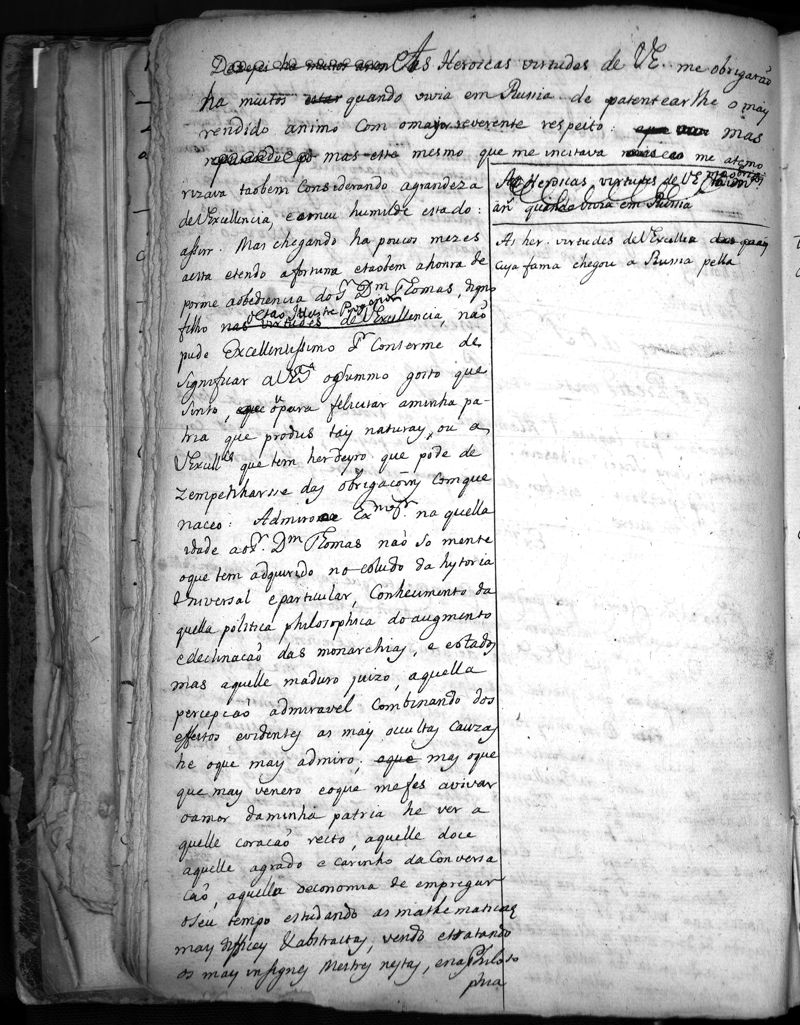 As Heroicas virtudes de VE. me obrigaraõ
ha muitos estar quando vivia em Russia de patentearlhe o may
rendido animo com o mayor reverente respeito: mas
mas esta mesmo que me incitava me atemo
rizava taobem Considerando agrandeza
de VExcellencia, eomeu humilde estado:
assir. Mas chegando ha poucos mezes
aesta etendo afortuna etaobem ahonra de
porme aobediencia do Sr. Dm Thomas, digno
filho nas virtudes de VExcellencia, naõ
de tao Illustre Progenitor
pude Excellentissimo Sr Conterme de
significar a VEa o summo gosto que
sinto, eque para felicitar aminha pa-
tria que produs tay naturay, ou a
VExcell que tem herdeyro que pode de
zempenharsse das obrigacoiny Com que
naceo: Admiro Exmo Sr. na quella
idade ao Sr. Dm Thomas naõ so mente
oque tem adquirido no estudo da hystoria
Universal e particular, Conhecimento da
quella politica philosophica do augmento
e declinacaõ das monarchias, e estados
mas aquelle maduro juizo, aquella
percepcaõ admiravel Combinando dos
effeitos evidentes as may occultas Cauzas
he oque may admiro; eque mas oque
que may venero eoque me fes avivar
o amor da minha patria he ver a
quelle coracaõ recto, aquelle doce
aquelle agrado e carinho da Conversa
caõ, aquella oeconomia de empregar
o seu tempo estudando as mathematicas
may difficey & abstractas, vendo etratando
os may insignes Mestres nestas, e na Philoso
phia
As Heroicas virtudes de VE
me obriga
añ quando vivia em Russia
As her. virtudes de VExcellea
Cuya fama chegou a Russia pella